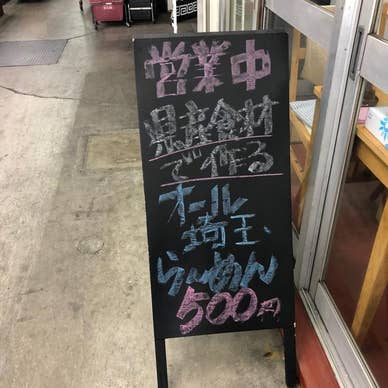 営業中
県産食材
で作る
オール
埼玉、
らーめん
500円